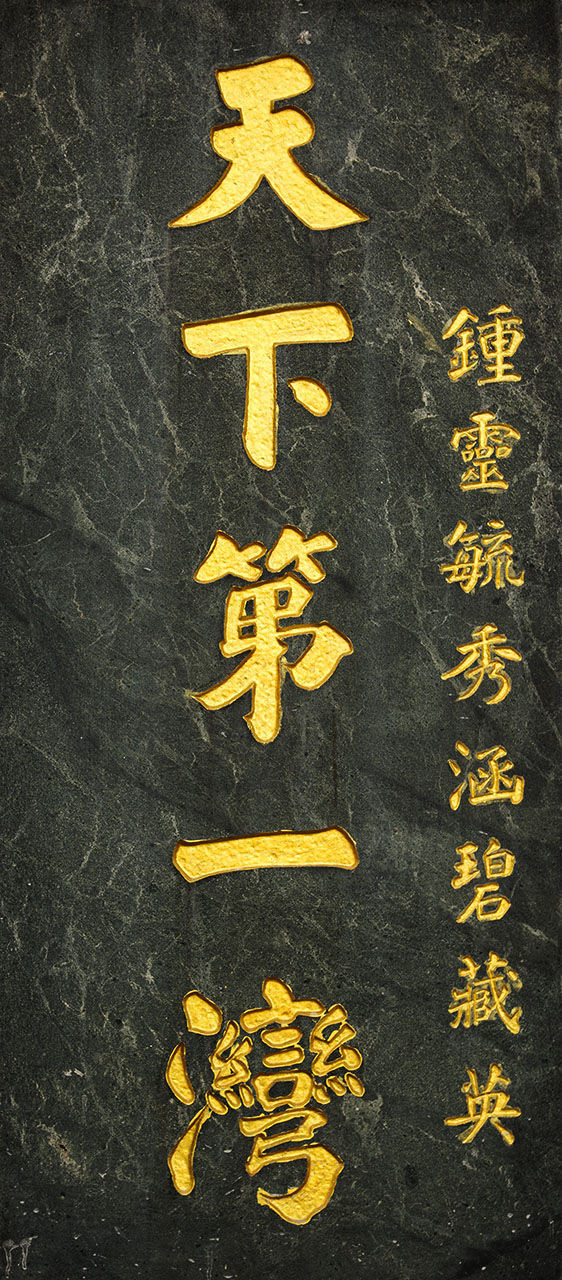 鍾靈毓秀涵碧藏英
天下第一灣